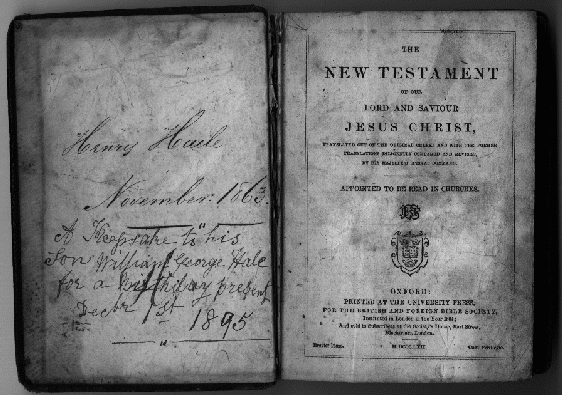 Henry Hale
November 1863.
A Keepsake to his
Son William George Hale
for a birthday present
Decbr 1st
1895
THE
NEW TESTAMENT
OF OUR
LORD AND SAVIOUR
JESUS CHRIST,
TRANSLATED OUT OF THE ORIGINAL GREEK; AND WITH THE FORMER
TRANSLATIONS DILIGENTLY COMPARED AND REVISED,
BY HIS MAJESTY'S SPECIAL COMMAND.
APPOINTED TO BE READ IN CHURCHES.
OXFORD:
PRINTED AT THE UNIVERSITY PRESS,
FOR THE BRITISH AND FOREIGN BIBLE SOCIETY,
Instituted in London in the Year 1804;
And sold to Subscribers at the Society's House, Earl Street,
Blackfriars, London.